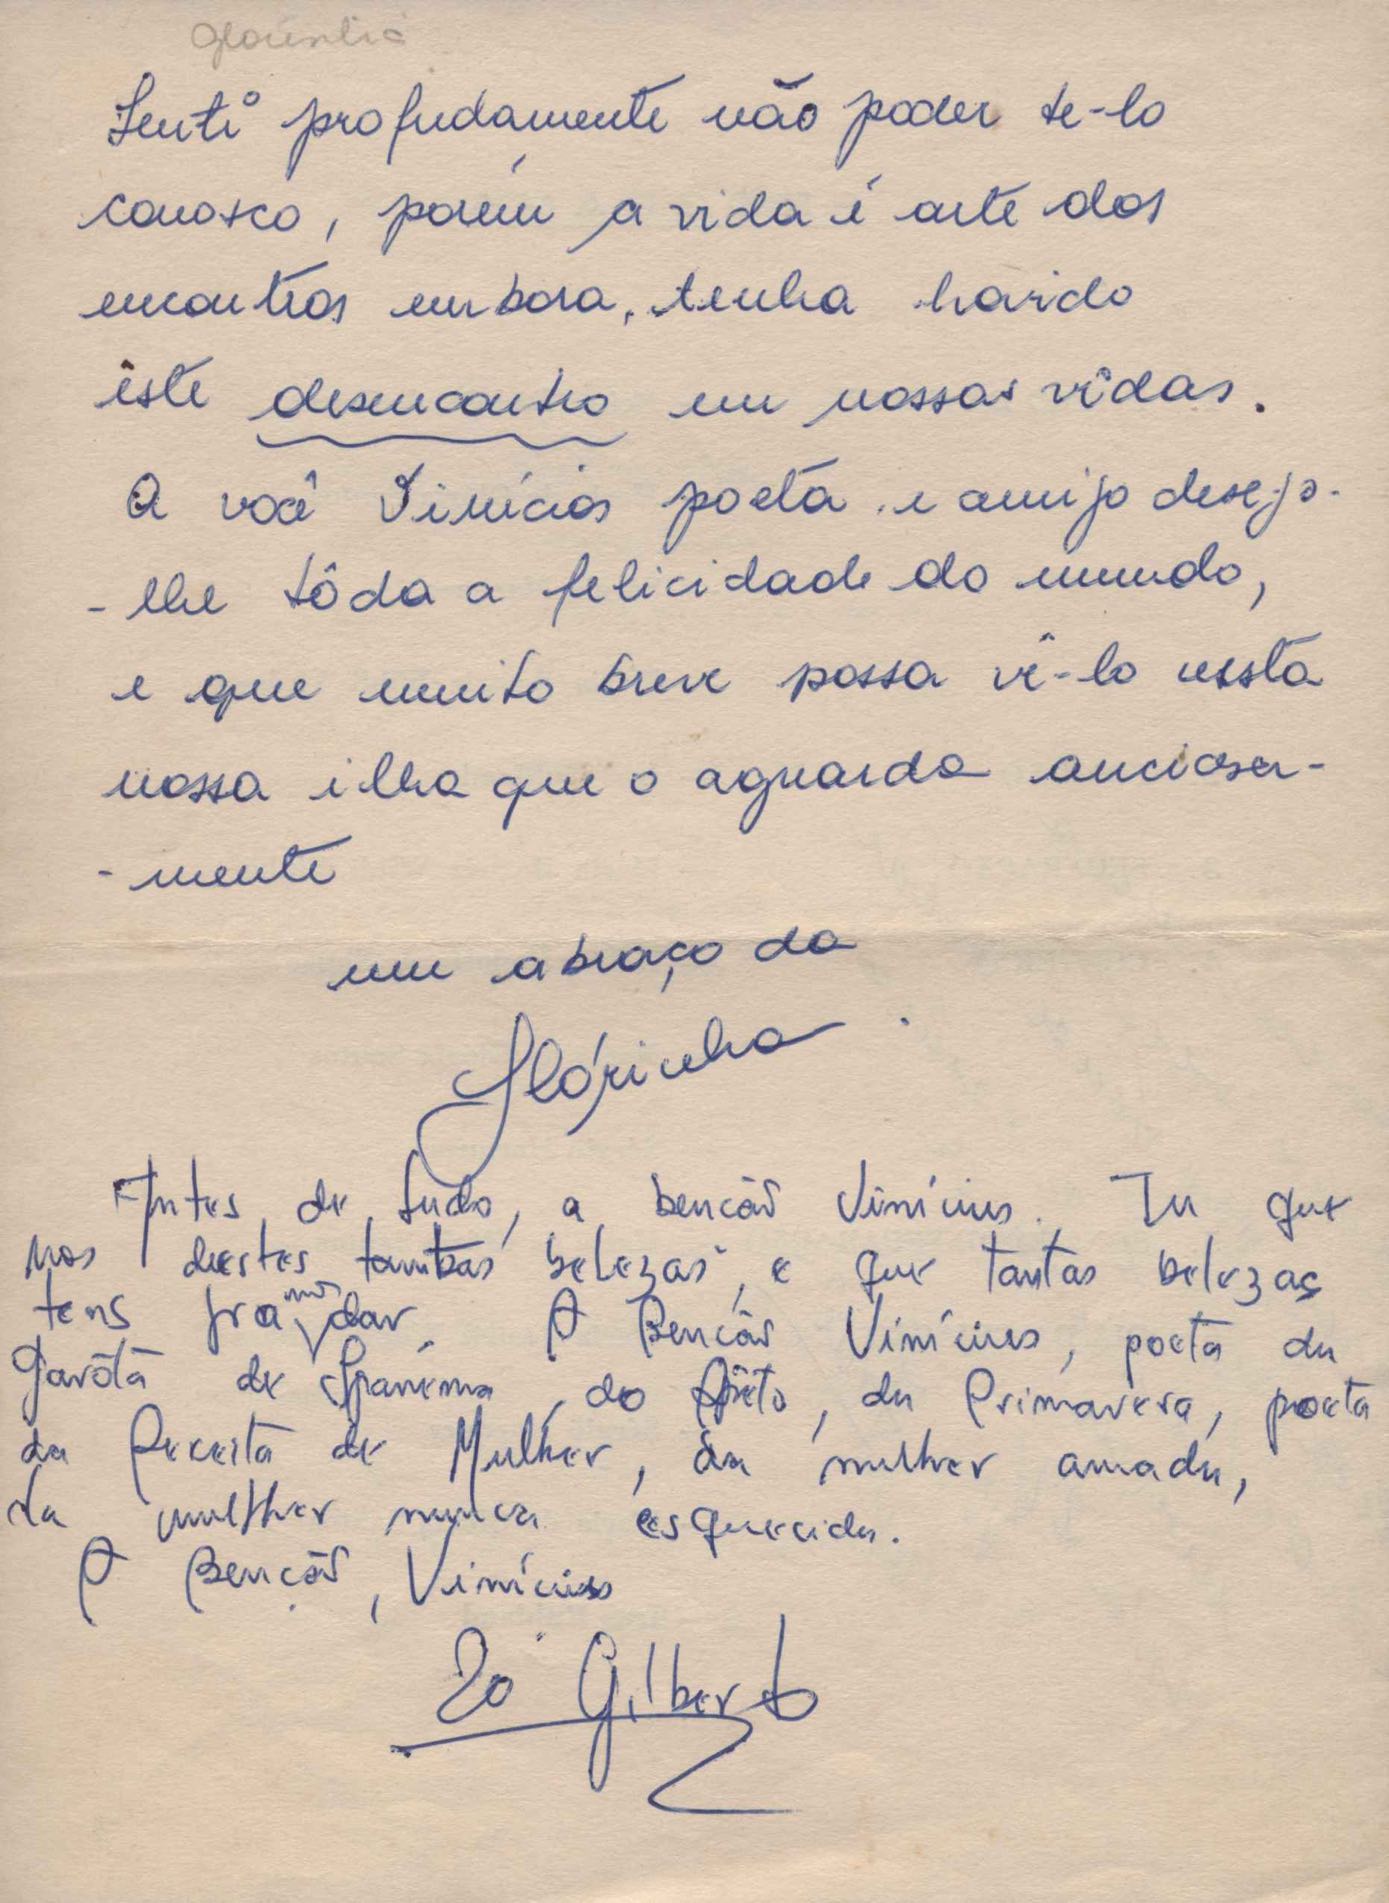 Senti profudamente não poder te-lo
conosco, porém a vida é arte dos
encontros embora, tenha havido
êste desencontro em nossas vidas.
A você Vinícios poeta e amigo desejo-
-lhe tôda a felicidade do mundo,
e que muito breve possa vê-lo nesta
nossa ilha que o aguarda anciosa-
-mente
um abraço da
Flórinha.
Antes de tudo, a bencão Vinícius. Tu que
nos destes tantas belezas, e que tantas belezas
tens pra nos dar. A Bencão Vinícius, poeta da
Garôta de Ipanema, do , da Primavera, poeta
da Receita de Mulher, da mulher amada,
da mulher nunca esquecida.
A Bençâo, Vinícius
Zé Gilberto